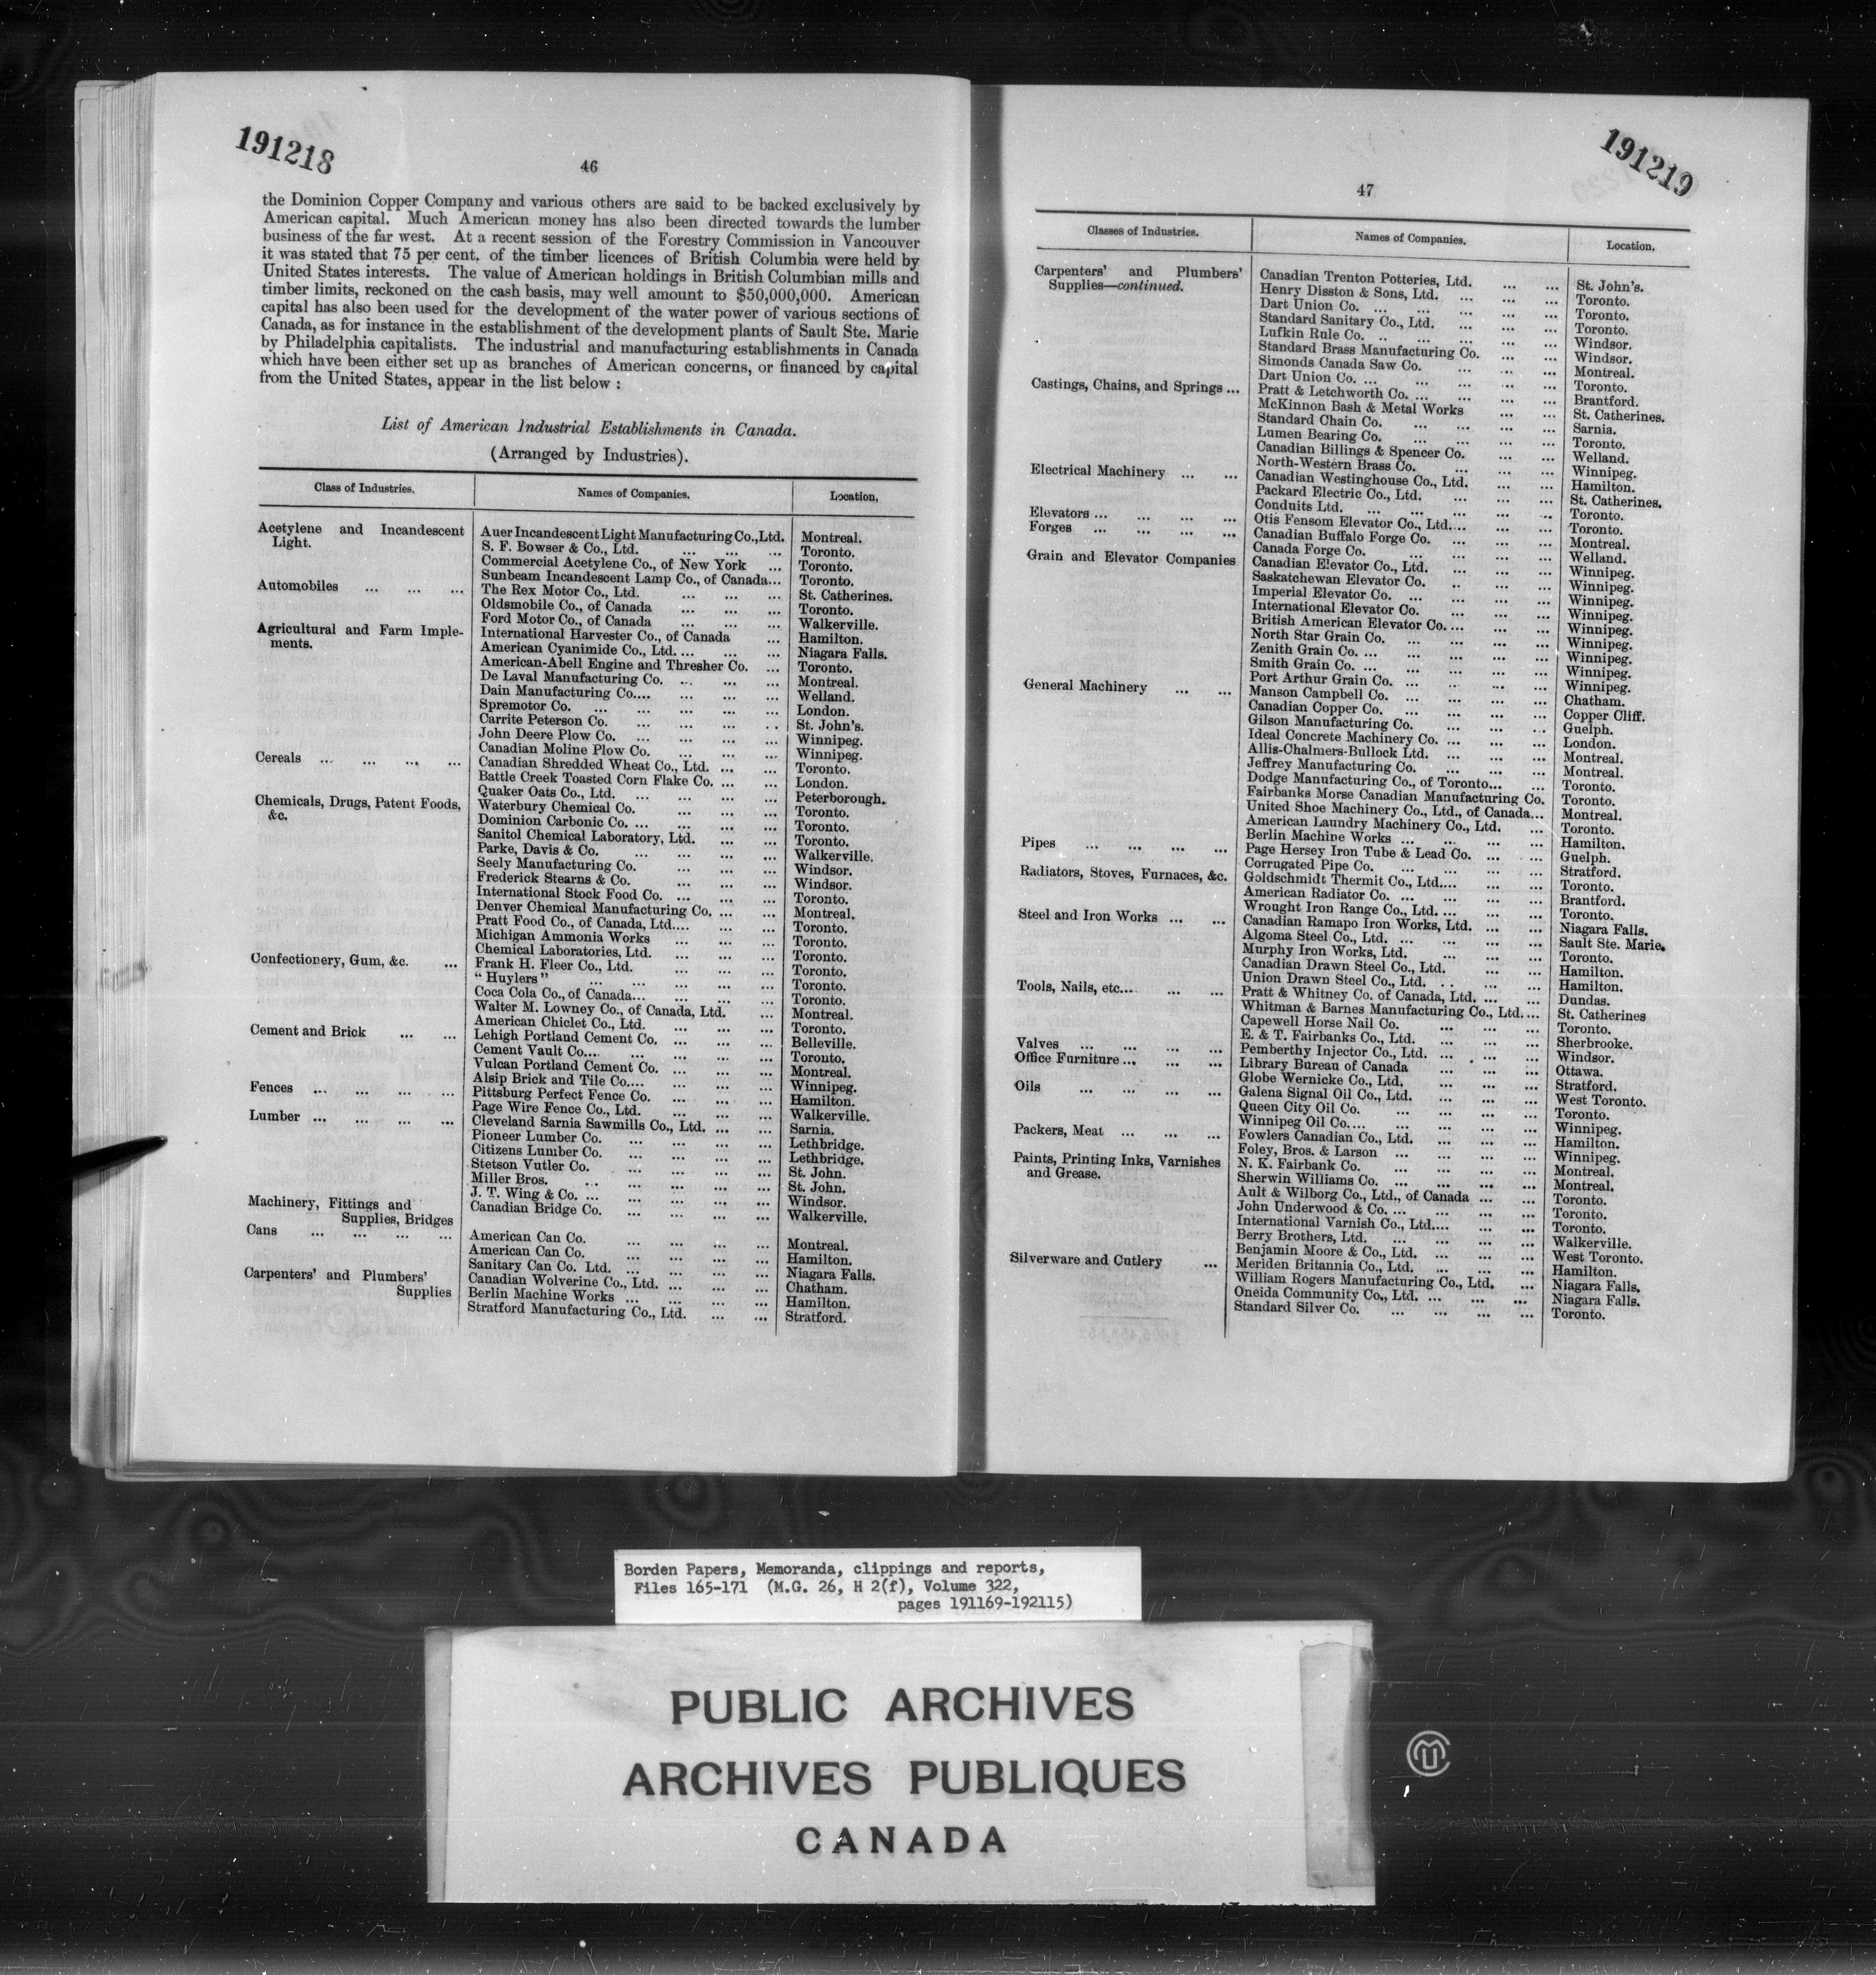 191218
46
the Dominion Copper Company and various others are said to be backed exclusively by
American capital. Much American money has also been directed towards the lumber
business of the far west. At a recent session of the Forestry Commission in Vancouver
it was stated that 75 per cent. of the timber licences of British Columbia were held by
United States interests. The value of American holdings in British Columbian mills and
timber limits, reckoned on the cash basis, may well amount to $50,000,000. American
capital has also been used for the development of the water power of various sections of
Canada, as for instance in the establishment of the development plants of Sault Ste. Marie
by Philadelphia capitalists. The industrial and manufacturing establishments in Canada
which have been either set up as branches of American concerns, or financed by capital
from the United States, appear in the list below :
List of American Industrial Establishments in Canada.
(Arranged by Industries).
Class of Industries. Names of Companies. Location.
Acetylene and Incandescent Auer Incandescent Light Manufacturing Co., Ltd. Montreal.
Light. S. F. Bowser & Co., Ltd. ... ... ... Toronto.
Commercial Acetylene Co., of New York ... Toronto.
Sunbeam Incandescent Lamp Co., of Canada... Toronto.
Automobiles ... ... ... The Rex Motor Co., Ltd. ... ... ... St. Catherines.
Oldsmobile Co., of Canada ... ... ... Toronto.
Ford Motor Co., of Canada ... ... ... Walkerville.
Agricultural and Farm Imple- International Harvester Co., of Canada ... Hamilton.
ments. American Cyanimide Co., Ltd. ... ... ... Niagara Falls.
American-Abell Engine and Thresher Co. ... Toronto.
De Laval Manufacturing Co. ... ... ... Montreal.
Dain Manufacturing Co.... ... ... ... Welland.
Spremotor Co. ... ... ... ... ... London.
Carrite Peterson Co. ... ... ... ... St. John's.
John Deere Plow Co. ... ... ... ... Winnipeg.
Canadian Moline Plow Co. ... ... ... Winnipeg.
Cereals ... ... ... ... Canadian Shredded Wheat Co., Ltd. ... ... Toronto.
Battle Creek Toasted Corn Flake Co. ... ... London.
Quaker Oats Co., Ltd. ... ... ... ... Peterborough.
Chemicals, Drugs, Patent Foods, Waterbury Chemical Co. ... ... ... Toronto.
&c. Dominion Carbonic Co. ... ... ... ... Toronto.
Sanitol Chemical Laboratory, Ltd. ... ... Toronto.
Parke, Davis & Co. ... ... ... ... Walkerville.
Seely Manufacturing Co. ... ... ... Windsor.
Frederick Stearns & Co. ... ... ... Windsor.
International Stock Food Co. ... ... ... Toronto.
Denver Chemical Manufacturing Co. ... ... Montreal.
Pratt Food Co., of Canada, Ltd.... ... ... Toronto.
Michigan Ammonia Works ... ... ... Toronto.
Chemical Laboratories, Ltd. ... ... ... Toronto.
Confectionery, Gum, &c. ... Frank H. Fleer Co., Ltd. ... ... ... Toronto.
" Huylers " ... ... ... ... ... Toronto.
Coca Cola Co., of Canada... ... ... ... Toronto.
Walter M. Lowney Co., of Canada, Ltd. ... Montreal.
American Chiclet Co., Ltd. ... ... ... Toronto.
Cement and Brick ... ... Lehigh Portland Cement Co. ... ... ... Belleville.
Cement Vault Co.... ... ... ... ... Toronto.
Vulcan Portland Cement Co. ... ... ... Montreal.
Alsip Brick and Tile Co.... ... ... ... Winnipeg.
Fences ... ... ... ... Pittsburg Perfect Fence Co. ... ... ... Hamilton.
Page Wire Fence Co., Ltd. ... ... ... Walkerville.
Lumber ... ... ... ... Cleveland Sarnia Sawmills Co., Ltd. ... ... Sarnia.
Pioneer Lumber Co. ... ... ... ... Lethbridge.
Citizens Lumber Co. ... ... ... ... Lethbridge.
Stetson Vutler Co. ... ... ... ... St. John.
Miller Bros. ... ... ... ... ... St. John.
J. T. Wing & Co. ... ... ... ... ... Windsor.
Machinery, Fittings and Canadian Bridge Co. ... ... ... ... Walkerville.
Supplies, Bridges
Cans ... ... ... ... American Can Co. ... ... ... ... Montreal.
American Can Co. ... ... ... ... Hamilton.
Sanitary Can Co. Ltd. ... ... ... ... Niagara Falls.
Carpenters' and Plumbers' Canadian Wolverine Co., Ltd. ... ... ... Chatham.
Supplies Berlin Machine Works ... ... ... ... Hamilton.
Stratford Manufacturing Co., Ltd. ... ... Stratford.
191219
47
Classes of Industries. Names of Companies. Location.
Carpenters' and Plumbers' Canadian Trenton Potteries, Ltd. ... ... St. John's.
Supplies—continued. Henry Disston & Sons, Ltd. ... ... ... Toronto.
Dart Union Co. ... ... ... ... ... Toronto.
Standard Sanitary Co., Ltd. ... ... ... Toronto.
Lufkin Rule Co. ... ... ... ... ... Windsor.
Standard Brass Manufacturing Co. ... ... Windsor.
Simonds Canada Saw Co. ... ... ... Montreal.
Dart Union Co. ... ... ... ... ... Toronto.
Castings, Chains, and Springs ... Pratt & Letchworth Co. ... ... ... ... Brantford.
McKinnon Bash & Metal Works ... ... St. Catherines.
Standard Chain Co. ... ... ... ... Sarnia.
Lumen Bearing Co. ... ... ... ... Toronto.
Canadian Billings & Spencer Co. ... ... Welland.
North-Western Brass Co. ... ... ... Winnipeg.
Electrical Machinery ... ... Canadian Westinghouse Co., Ltd. ... ... Hamilton.
Packard Electric Co., Ltd. ... ... ... St. Catherines.
Conduits Ltd. ... ... ... ... ... Toronto.
Elevators ... ... ... ... Otis Fensom Elevator Co., Ltd.... ... ... Toronto.
Forges ... ... ... ... Canadian Buffalo Forge Co. ... ... ... Montreal.
Canada Forge Co. ... ... ... ... Welland.
Grain and Elevator Companies Canadian Elevator Co., Ltd. ... ... ... Winnipeg.
Saskatchewan Elevator Co. ... ... ... Winnipeg.
Imperial Elevator Co. ... ... ... ... Winnipeg.
International Elevator Co. ... ... ... Winnipeg.
British American Elevator Co. ... ... ... Winnipeg.
North Star Grain Co. ... ... ... ... Winnipeg.
Zenith Grain Co. ... ... ... ... ... Winnipeg.
Smith Grain Co. ... ... ... ... ... Winnipeg.
Port Arthur Grain Co. ... ... ... ... Winnipeg.
General Machinery ... ... Manson Campbell Co. ... ... ... ... Chatham.
Canadian Copper Co. ... ... ... ... Copper Cliff.
Gilson Manufacturing Co. ... ... ... Guelph.
Ideal Concrete Machinery Co. ... ... ... London.
Allis-Chalmers-Bullock Ltd. ... ... ... Montreal.
Jeffrey Manufacturing Co. ... ... ... Montreal.
Dodge Manufacturing Co., of Toronto... ... Toronto.
Fairbanks Morse Canadian Manufacturing Co. Toronto.
United Shoe Machinery Co., Ltd., of Canada... Montreal.
American Laundry Machinery Co., Ltd. ... Toronto.
Berlin Machine Works ... ... ... ... Hamilton.
Pipes ... ... ... ... Page Hersey Iron Tube & Lead Co. ... ... Guelph.
Corrugated Pipe Co. ... ... ... ... Stratford.
Radiators, Stoves, Furnaces, &c. Goldschmidt Thermit Co., Ltd.... ... ... Toronto.
American Radiator Co. ... ... ... ... Brantford.
Wrought Iron Range Co., Ltd. ... ... ... Toronto.
Steel and Iron Works ... ... Canadian Ramapo Iron Works, Ltd. ... ... Niagara Falls.
Algoma Steel Co., Ltd. ... ... ... ... Sault Ste. Marie.
Murphy Iron Works, Ltd. ... ... ... Toronto.
Canadian Drawn Steel Co., Ltd. ... ... Hamilton.
Union Drawn Steel Co., Ltd. ... ... ... Hamilton.
Tools, Nails, etc.... ... ... Pratt & Whitney Co. of Canada, Ltd. ... ... Dundas.
Whitman & Barnes Manufacturing Co., Ltd.... St. Catherines
Capewell Horse Nail Co. ... ... ... Toronto.
E. & T. Fairbanks Co., Ltd. ... ... ... Sherbrooke.
Valves ... ... ... ... Pemberthy Injector Co., Ltd. ... ... ... Windsor.
Office Furniture ... ... ... Library Bureau of Canada ... ... ... Ottawa.
Globe Wernicke Co., Ltd. ... ... ... Stratford.
Oils ... ... ... ... Galena Signal Oil Co., Ltd. ... ... ... West Toronto.
Queen City Oil Co. ... ... ... ... Toronto.
Winnipeg Oil Co.... ... ... ... ... Winnipeg.
Packers, Meat ... ... ... Fowlers Canadian Co., Ltd. ... ... ... Hamilton.
Foley, Bros. & Larson ... ... ... ... Winnipeg.
Paints, Printing Inks, Varnishes N. K. Fairbank Co. ... ... ... ... Montreal.
and Grease. Sherwin Williams Co. ... ... ... ... Montreal.
Ault & Wilborg Co., Ltd., of Canada ... ... Toronto.
John Underwood & Co. ... ... ... ... Toronto.
International Varnish Co., Ltd.... ... ... Toronto.
Berry Brothers, Ltd. ... ... ... ... Walkerville.
Benjamin Moore & Co., Ltd. ... ... ... West Toronto.
Silverware and Cutlery ... Meriden Britannia Co., Ltd. ... ... ... Hamilton.
William Rogers Manufacturing Co., Ltd. ... Niagara Falls.
Oneida Community Co., Ltd. ... ... ... Niagara Falls.
Standard Silver Co. ... ... ... ... Toronto.
Borden Papers, Memoranda, clippings and reports,
Files 165-171 (M.G. 26, H 2(f), Volume 322,
pages 191169-192115)
PUBLIC ARCHIVES
ARCHIVES PUBLIQUES
CANADA